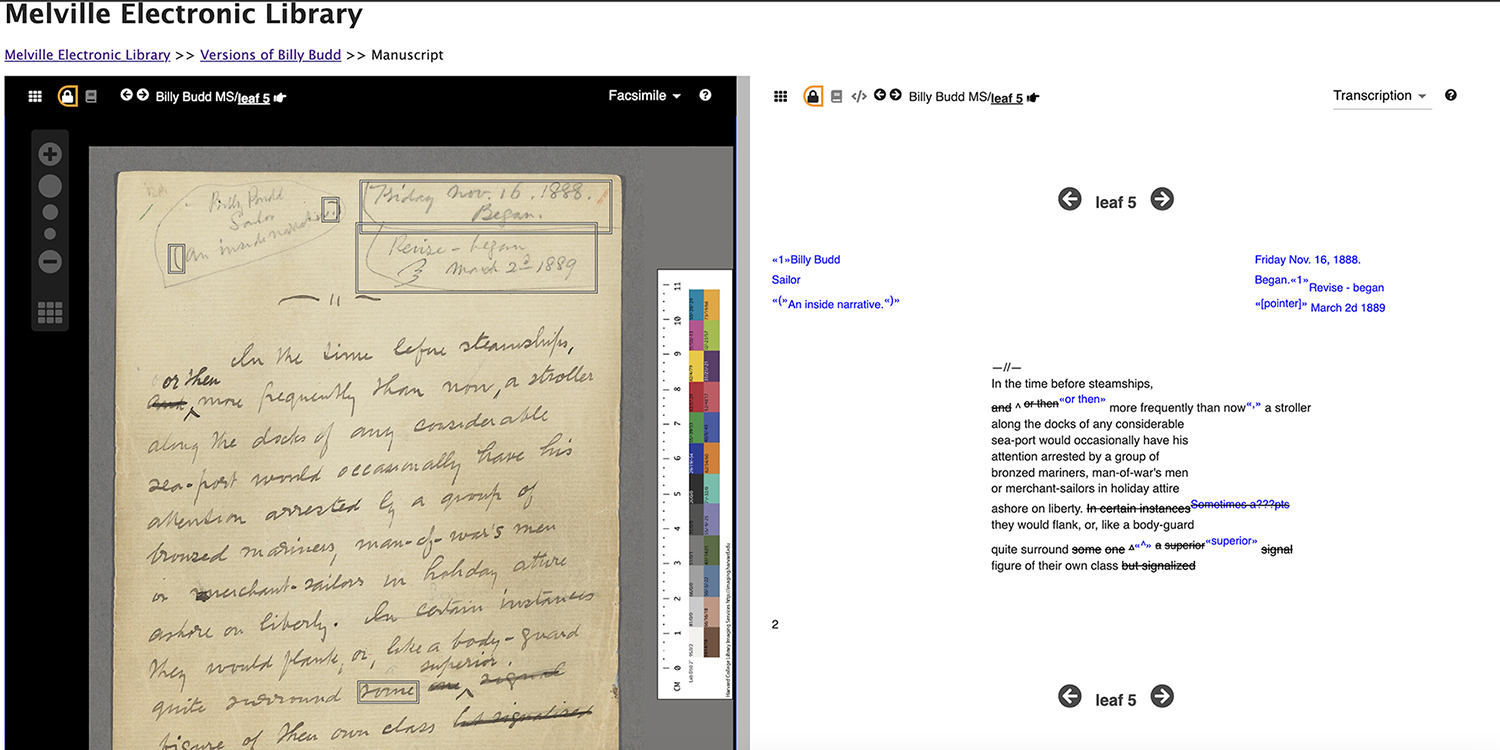 Melville Electronic Library
Melville Electronic Library >> Versions of Billy Budd >> Manuscript
Billy Budd MS/leaf 5
Facsimile
Billy Budd
Sailor
(An inside narrative.)
Friday Nov. 16. 1888.
Began.
Revise - began
March 2d 1889
— 11 —
In the time before steamships,
or then
and ^ more frequently than now, a stroller
along the docks of any considerable
sea-port would occasionally have his
attention arrested by a group of
bronzed mariners, man-of-war's men
or merchant-sailors in holiday attire
ashore on liberty. In certain instances
they would flank, or, like a body-guard
superior.
quite surround some one ^ signal
figure of their own class but signalized
11
10
9
8
7
6
5
4
3
2
1
CM 0
Harvard College Library Imaging Services
Billy Budd MS/leaf 5
Transcription
leaf 5
«1»Billy Budd
Sailor
«(»An inside narrative.«)»
Friday Nov. 16, 1888.
Began.«1»Revise - began
«[pointer]» March 2d 1889
—//—
In the time before steamships,
and ^ or then«or then» more frequently than now«,» a stroller
along the docks of any considerable
sea-port would occasionally have his
attention arrested by a group of
bronzed mariners, man-of-war's men
or merchant-sailors in holiday attire
ashore on liberty. In certain instancesSometimes a???pts
they would flank, or, like a body-guard
quite surround some one ^«^» a superior«superior» signal
figure of their own class but signalized
2
leaf 5